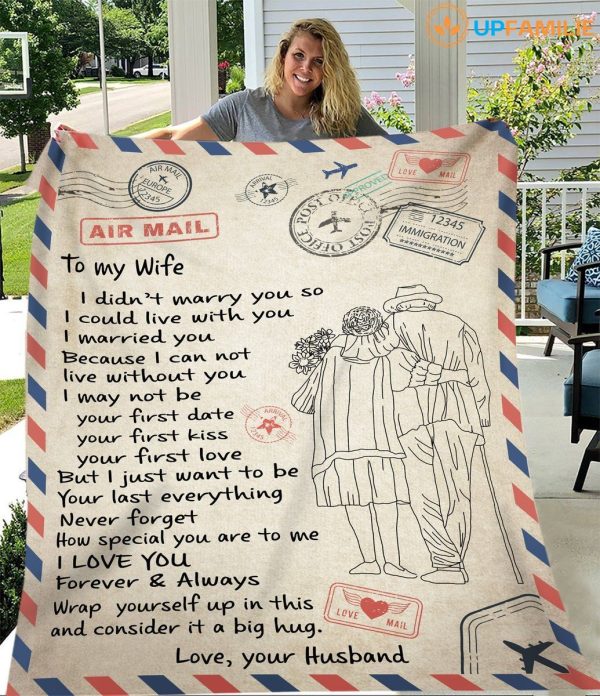 UPFAMILIE
AIR MAIL
EUROPE
12345
ARRIVAL
12345
APPROVED
LOVE MAIL
POST OFFICE
POST OFFICE
12345
IMMIGRATION
AIR MAIL
To my Wife
I didn't marry you so
I could live with you
I married you
Because I can not
live without you
I may not be
your first date
your first kiss
your first love
ARRIVAL
12345
But I just want to be
Your last everything
Never forget
How special you are to me
I LOVE YOU
Forever & Always
Wrap yourself up in this
and consider it a big hug.
LOVE MAIL
Love, your Husband